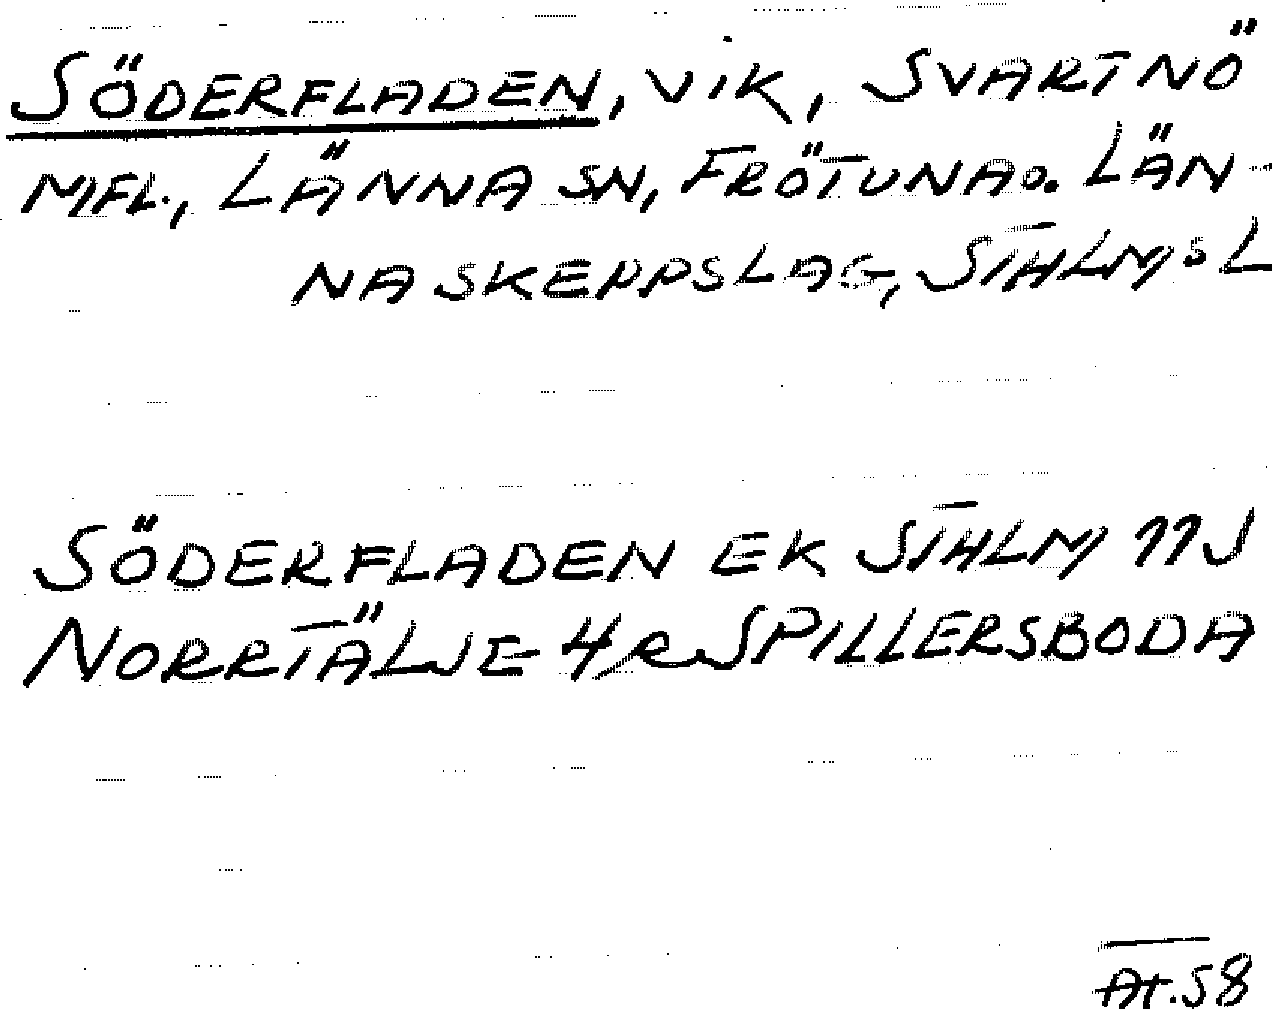 SÖDERFLADEN, VIK, SVARTNÖ
MFL., LÄNNA SN, FRÖTUNA O. LÄN-
NA SKEPPSLAG, STHLMS L
SÖDERFLADEN EK STHLM 11J
NORRTÄLJE 4 SPILLERSBODA
At.58